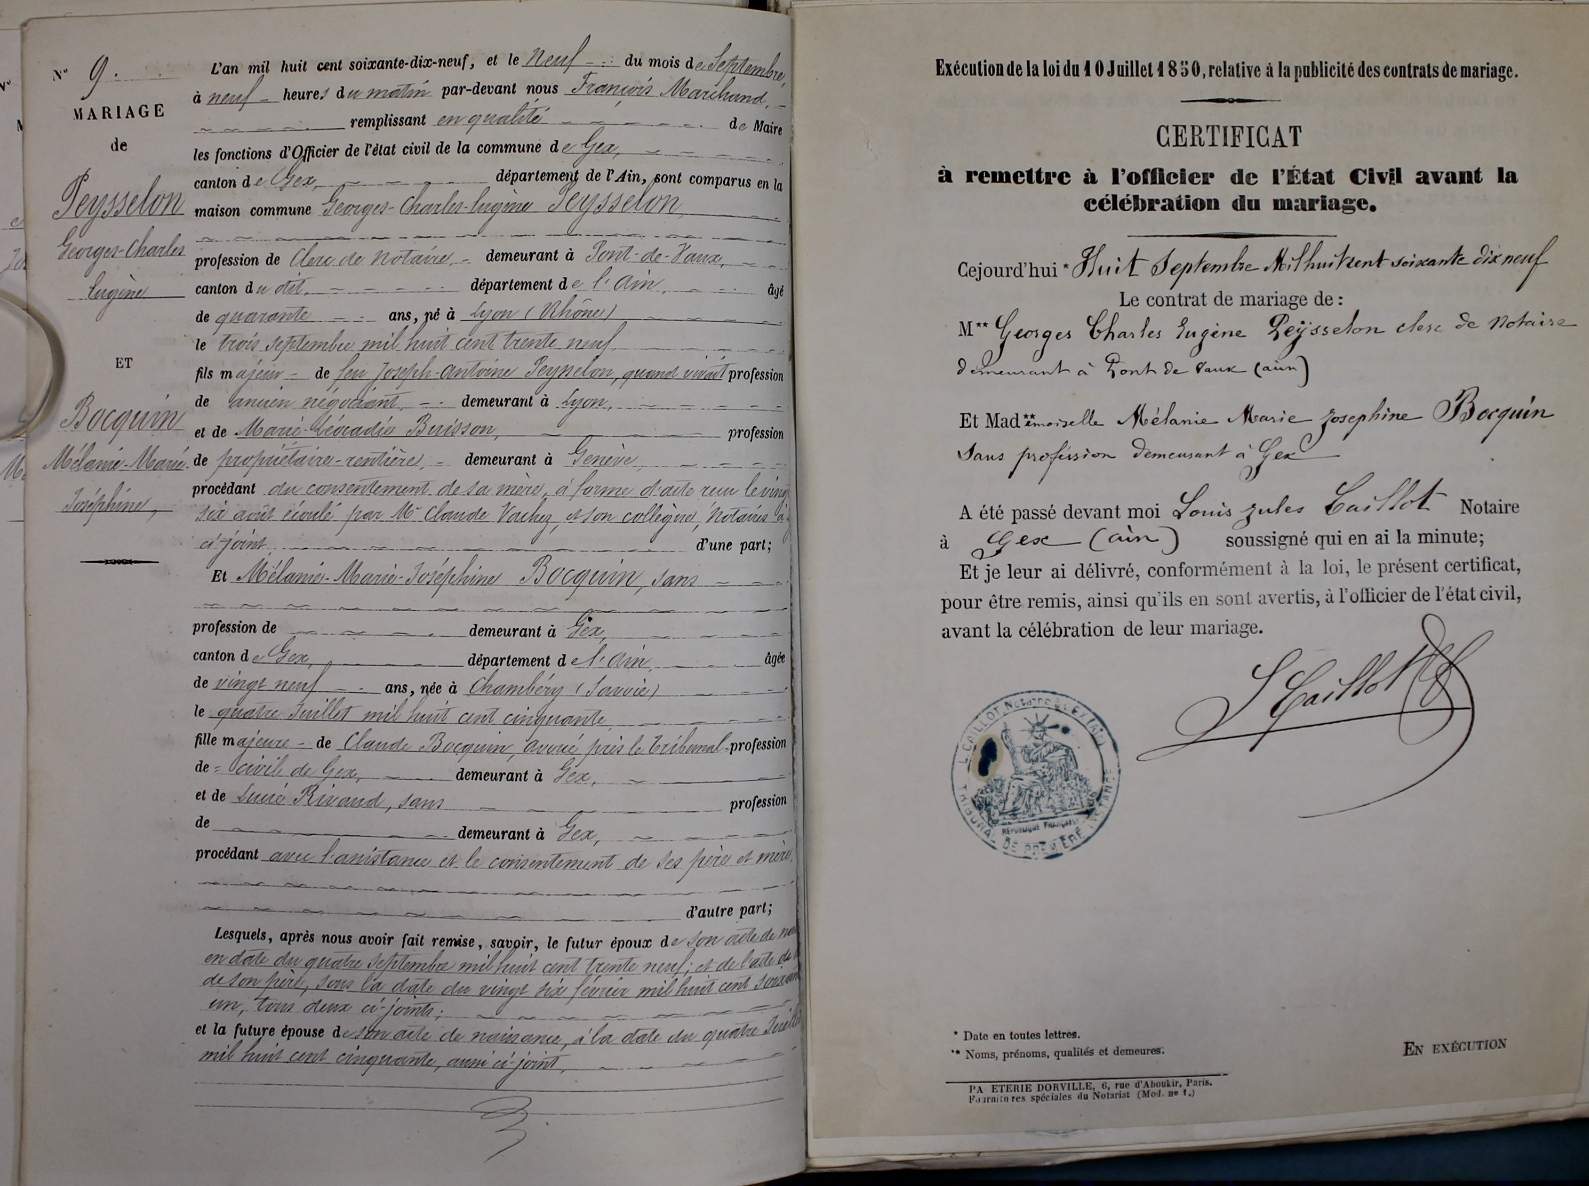 N° 9.
MARIAGE
de
Peysselon
Georges-Charles
Eugène
ET
Bocquin
Mélanie-Marie-
Joséphine,
L'an mil huit cent soixante-dix-neuf, et le Neuf du mois de Septembre,
à neuf heures du matin par-devant nous François Marchand,
remplissant en qualité de Maire
les fonctions d'Officier de l'état civil de la commune de Gex,
canton de Gex, département de l'Ain, sont comparus en la
maison commune Georges-Charles-Eugène Peysselon
profession de Clerc de Notaire, demeurant à Pont-de-Vaux,
canton du dit, département de l'Ain, âgé
de quarante ans, né à Lyon (Rhône)
le trois septembre mil huit cent trente neuf
fils majeur de feu Joseph-Antoine Peysselon, quand vivait profession
de ancien négociant, demeurant à Lyon,
et de Marie-Léocadie Buisson, profession
de propriétaire-rentière, demeurant à Genève,
procédant du consentement de sa mère, à forme d'acte reçu le vingt
six août écoulé par Mr Claude Vachez, et son collègue, Notaires à
ci-joint, d'une part;
Et Mélanie-Marie-Joséphine Bocquin, sans
profession de demeurant à Gex,
canton de Gex, département de l'Ain, âgée
de vingt neuf ans, née à Chambéry (Savoie)
le quatre Juillet mil huit cent cinquante
fille majeure de Claude Bocquin, avoué près le Tribunal profession
de civil de Gex, demeurant à Gex,
et de Lucie Rivaud, sans profession
de demeurant à Gex,
procédant avec l'assistance et le consentement de ses père et mère,
d'autre part;
Lesquels, après nous avoir fait remise, savoir, le futur époux de son acte de
en date du quatre septembre mil huit cent trente neuf; et de l'acte de
de son père, sous la date du vingt six février mil huit cent
un, tous deux ci-joints;
et la future épouse de son acte de naissance, à la date du quatre Juillet
mil huit cent cinquante, aussi ci-joint,
Exécution de la loi du 10 Juillet 1850, relative à la publicité des contrats de mariage.
CERTIFICAT
à remettre à l'officier de l'État Civil avant la
célébration du mariage.
Cejourd'hui * Huit Septembre Mil huit cent soixante dix neuf
Le contrat de mariage de :
M** Georges Charles Eugène Peÿsselon clerc de Notaire
demeurant à Pont de Vaux (ain)
Et Mad**emoiselle Mélanie Marie Josephine Bocquin
Sans profession demeurant à Gex
A été passé devant moi Louis Jules Caillot Notaire
à Gex (ain) soussigné qui en ai la minute;
Et je leur ai délivré, conformément à la loi, le présent certificat,
pour être remis, ainsi qu'ils en sont avertis, à l'officier de l'état civil,
avant la célébration de leur mariage.
L Caillot
L. CAILLOT Notaire à GEX (AIN)
TRIBUNAL DE PREMIÈRE INSTANCE
RÉPUBLIQUE FRANÇAISE
* Date en toutes lettres.
** Noms, prénoms, qualités et demeures.
EN EXÉCUTION
PA ETERIE DORVILLE, 6, rue d'Aboukir, Paris.
Fournitures spéciales du Notariat (Mod. n° 1.)